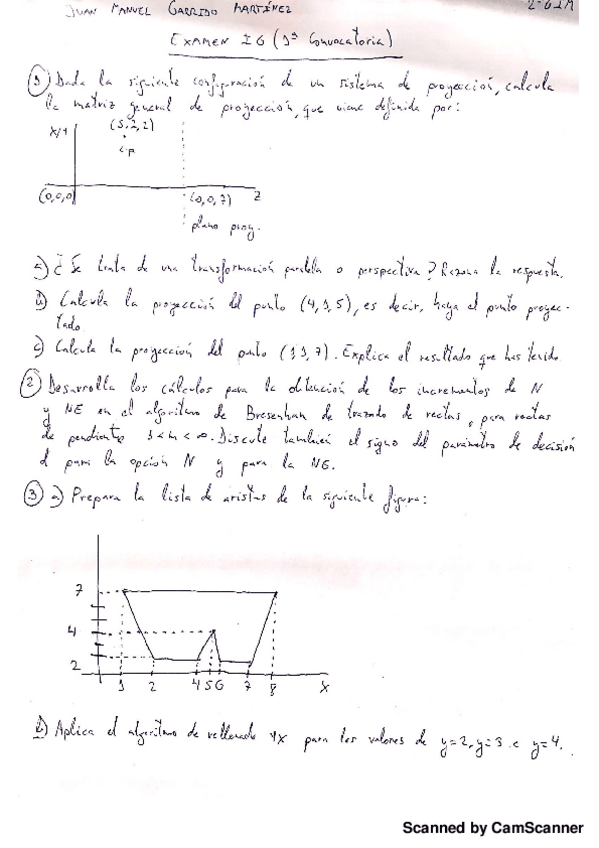 JUAN MANUEL GARRIDO MARTÍNEZ
EXAMEN IG (1ª Convocatoria)
① Dada la siguiente configuración de un sistema de proyección, calcula
la matriz general de proyección, que viene definida por:
(5,2,2)
X/Y
c.p
(0,0,0)
(0,0,7)
Z
plano proy.
a) ¿Se trata de una transformación paralela o perspectiva? Razona la respuesta.
b) Calcula la proyección del punto (4,1,5), es decir, haya el punto proyec-
tado.
c) Calcula la proyección del punto (1 1, 7). Explica el resultado que has tenido
② Desarrolla los cálculos para la obtención de los incrementos de N
y NE en el algoritmo de Bresenham de trazado de rectas, para rectas
de pendiente 1 < m < ∞. Discute también el signo del parámetro de decisión
d para la opción N y para la NE.
③ a) Prepara la lista de aristas de la siguiente figura:
7
4
2
1 2 4 5 6 7 8 X
b) Aplica el algoritmo de rellenado YX para los valores de y=2, y=3 e y=4.
Scanned by CamScanner